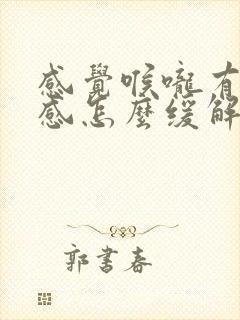 感覺喉嚨有
感怎麼緩解
郭書春